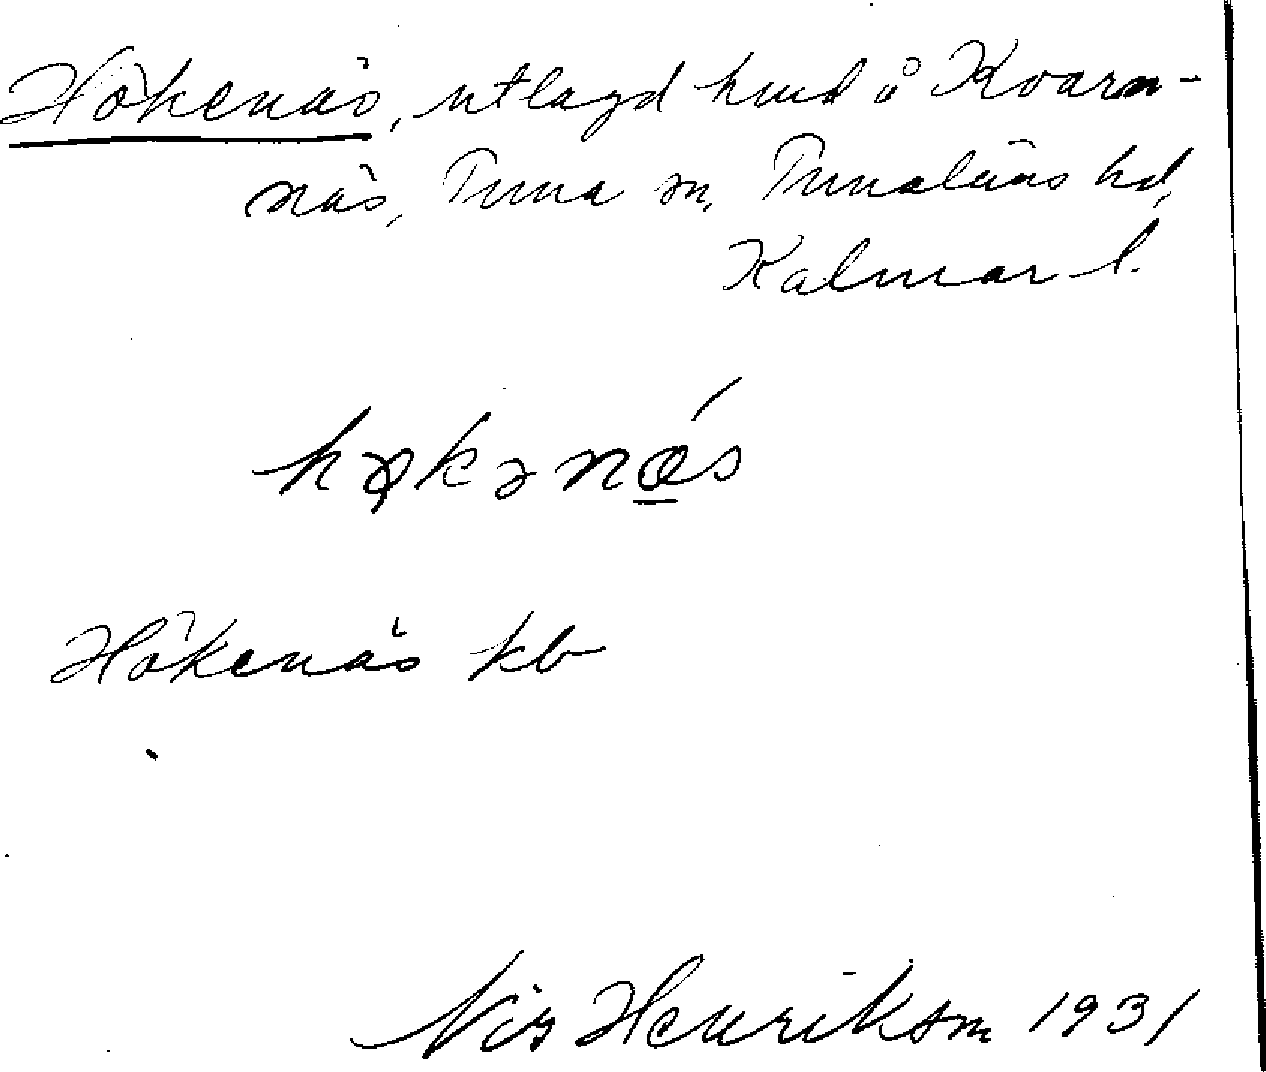 Hökenäs, utlagd hund å Kvarn-
näs, Tuna sn, Tunaläns hd,
Kalmar l.
Hökenäs kb
Nils Henrikson 1931